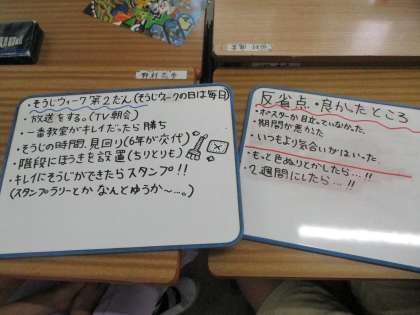 ・そうじウィーク第2だん(そうじウィークの日は毎日)
・放送をする。(TV朝会)
・一番教室がキレイだったら勝ち
・そうじの時間、見回り(6年が交代)
・階段にほうきを設置(ちりとりも)
・キレイにそうじができたらスタンプ!!
(スタンプラリーとか なんとゆうか〜…。)
反省点・良かったところ
・ポスターが目立っていなかった。
・期間が悪かった
・いつもより気合いがはいった。
・もっと色ぬりとかしたら…!!
・2週間にしたら…!!